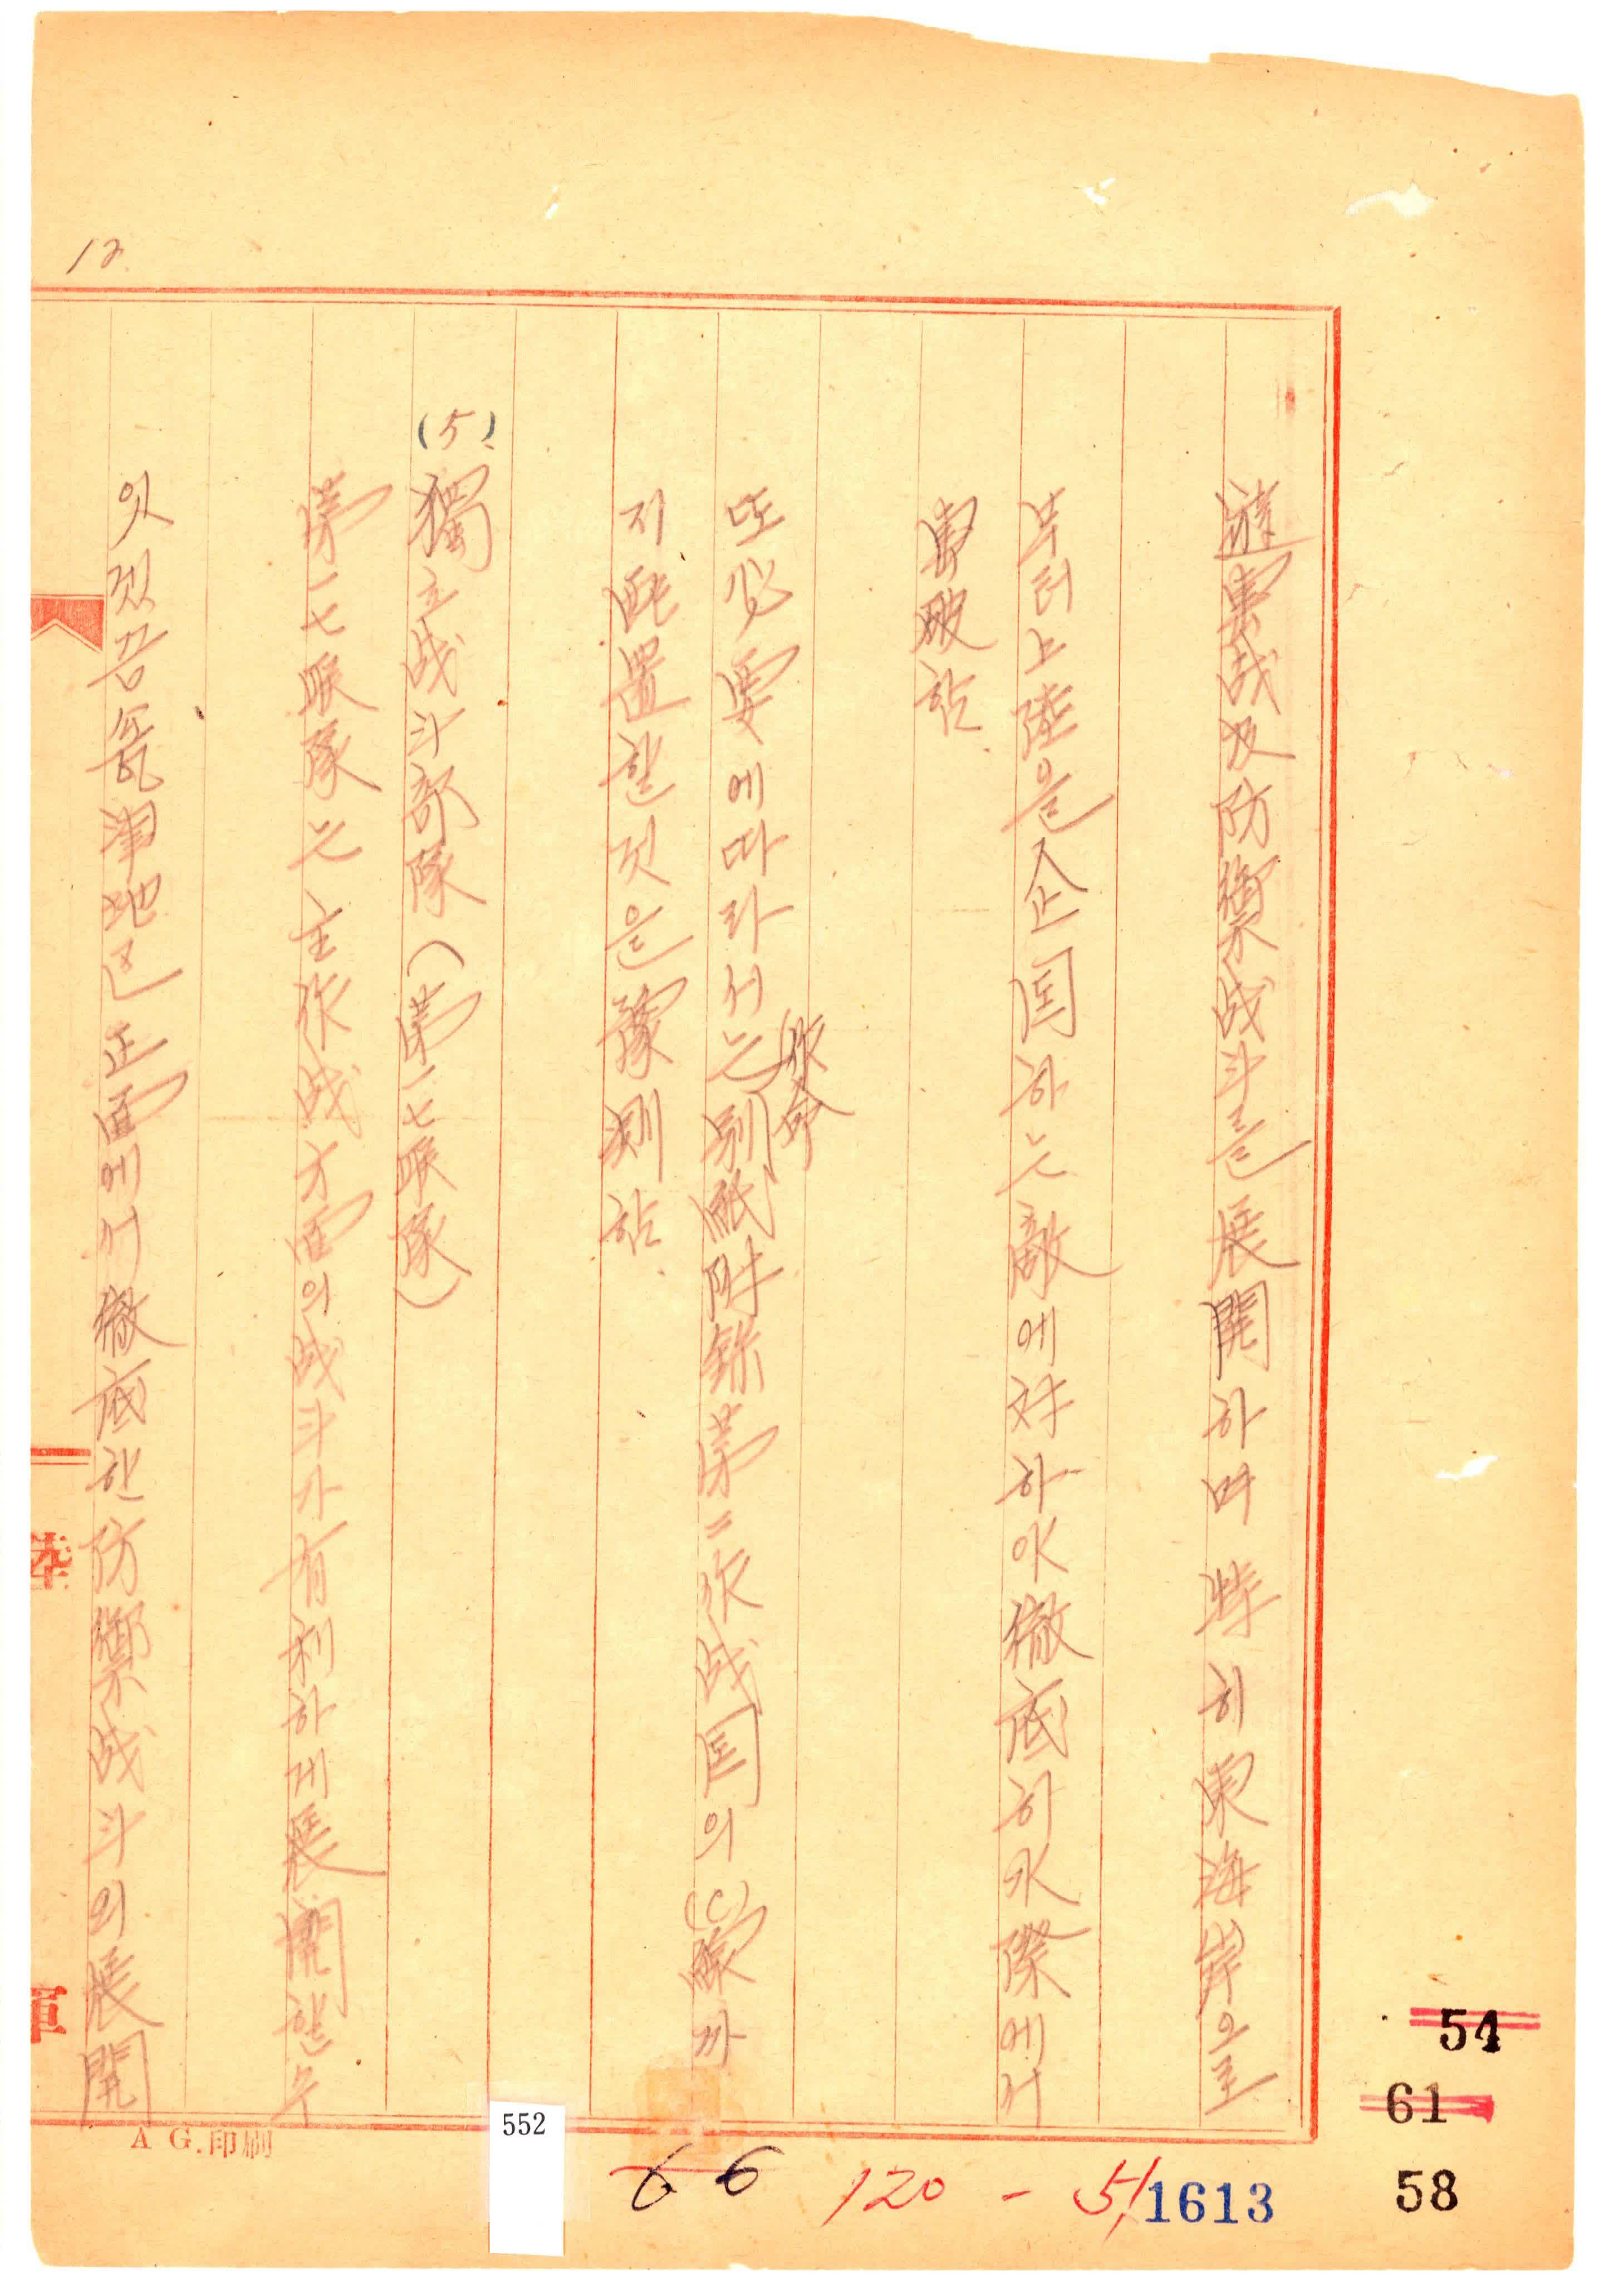 12
遊擊战及防禦战斗를 展開하며 特히 東海岸으로
부터 上陸을 企図하는 敵에 対하야 徹底히 水際에서
擊破함
또 必要에 따라서는 別紙附錄第二作战図의 (C)線까
作命
지 配置할 것을 豫測함
(5) 獨立战斗部隊(第一七聯隊)
第一七聯隊는 主作战方面의 战斗가 有利하게 展開할 수
잇것끔 瓮津地区 正面에서 徹底한 防禦战斗의 展開
陸
軍
A G.印刷
552
66
120 - 5
1613
54
61
58